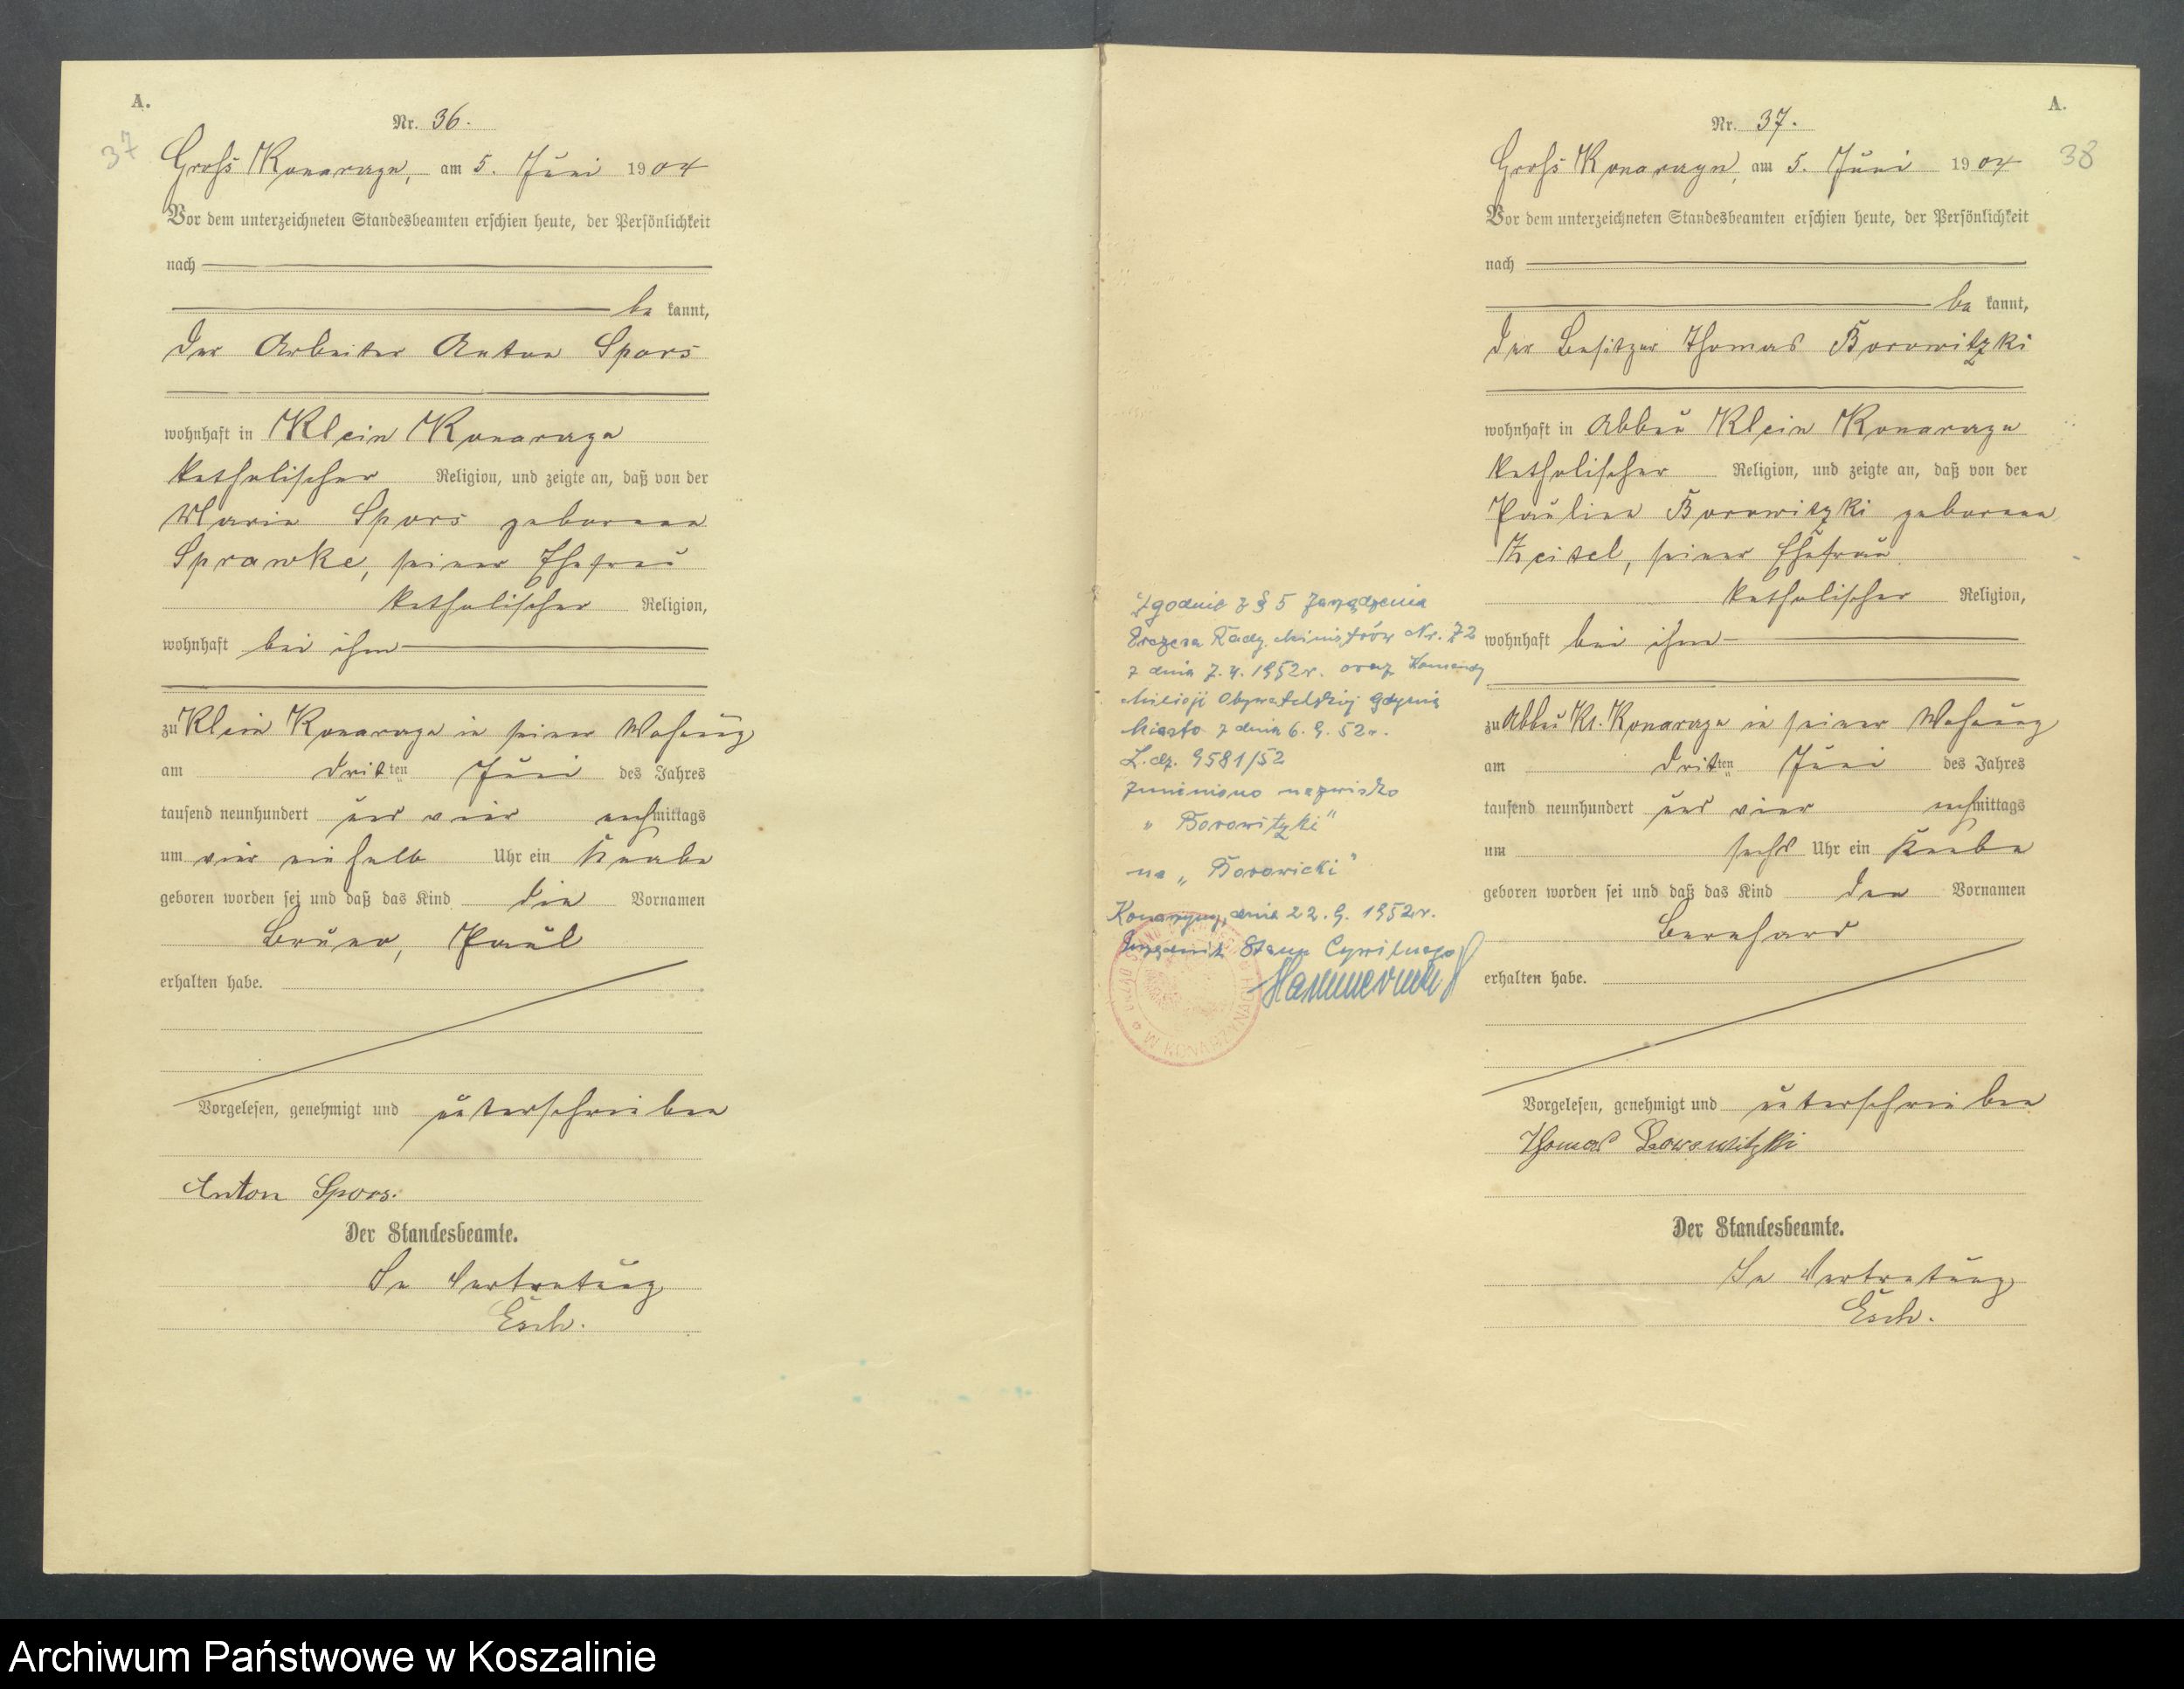 A.
37
Nr. 36.
Groß Konarczyn, am 5. Juni 1904
Vor dem unterzeichneten Standesbeamten erschien heute, der Persönlichkeit
nach
be kannt,
der Arbeiter Anton Spors
wohnhaft in Klein Konarczyn
katholischer Religion, und zeigte an, daß von der
Maria Spors geborene
Sprawke, seiner Ehefrau
katholischer Religion,
wohnhaft bei ihm
zu Klein Konarczyn in seiner Wohnung
am dritten Juni des Jahres
tausend neunhundert und vier nachmittags
um vier ein halb Uhr ein Knabe
geboren worden sei und daß das Kind die Vornamen
Bruno, Paul
erhalten habe.
Vorgelesen, genehmigt und unterschrieben
Anton Spors.
Der Standesbeamte.
In Vertretung
Esch.
A.
38
Nr. 37.
Groß Konarczyn, am 5. Juni 1904
Vor dem unterzeichneten Standesbeamten erschien heute, der Persönlichkeit
nach
be kannt,
der Besitzer Thomas Borowitzki
wohnhaft in Abbau Klein Konarczyn
katholischer Religion, und zeigte an, daß von der
Pauline Borowitzki geborene
seiner Ehefrau
katholischer Religion,
wohnhaft bei ihm
zu Abbau Kl. Konarczyn in seiner Wohnung
am dritten Juni des Jahres
tausend neunhundert und vier nachmittags
um sechs Uhr ein Knabe
geboren worden sei und daß das Kind den Vornamen
Bernhard
erhalten habe.
Vorgelesen, genehmigt und unterschrieben
Thomas Borowitzki
Der Standesbeamte.
In Vertretung
Esch.
Zgodnie z § 5 Zarządzenia
Prezesa Rady Ministrów Nr. 72
z dnia 7.4.1952r. oraz Komendy
Milicji Obywatelskiej Gdynia
Miasto z dnia 6.9.52r.
L.dz. 9581/52
zmieniono nazwisko
„Borowitzki"
na „Borowicki"
Konarzyny, dnia 22.9.1952r.
Urzędnik Stanu Cywilnego
Archiwum Państwowe w Koszalinie